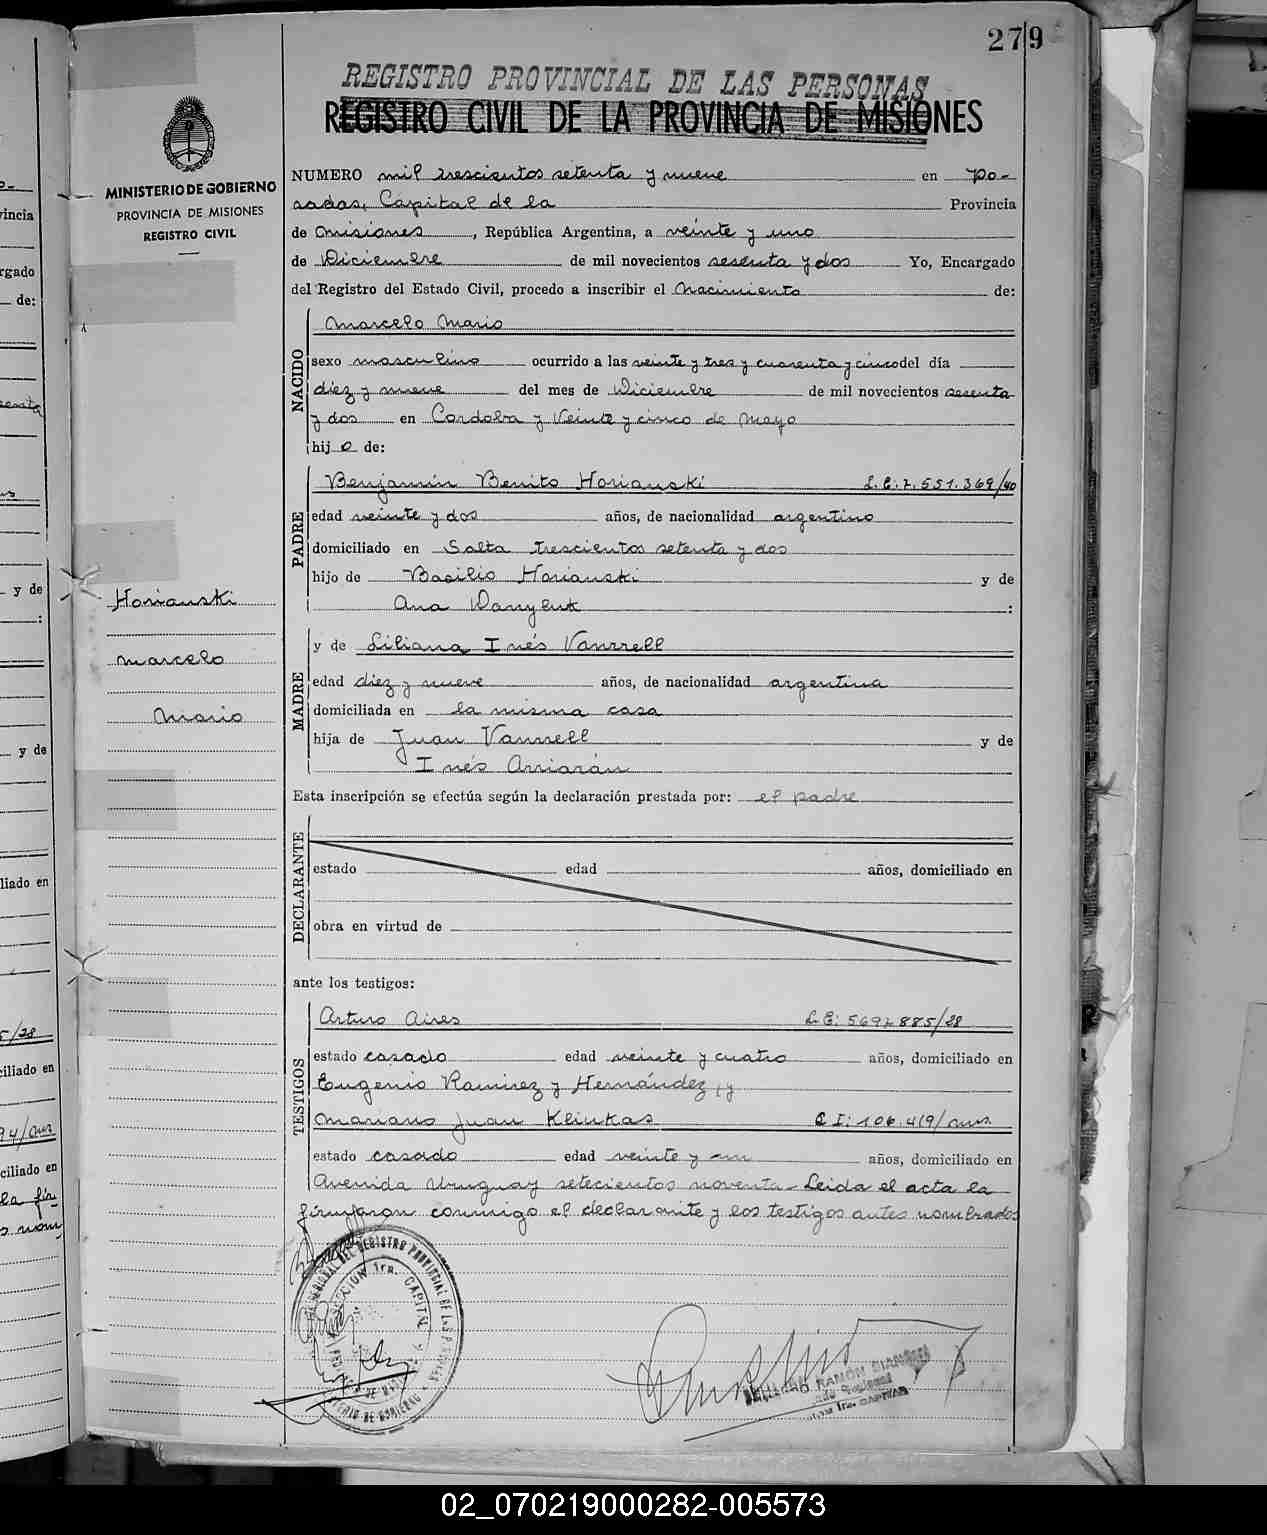 279
REGISTRO PROVINCIAL DE LAS PERSONAS
REGISTRO CIVIL DE LA PROVINCIA DE MISIONES
MINISTERIO DE GOBIERNO
PROVINCIA DE MISIONES
REGISTRO CIVIL
NUMERO mil trescientos setenta y nueve en Po-
sadas, Capital de la Provincia
de Misiones, República Argentina, a veinte y uno
de Diciembre de mil novecientos sesenta y dos Yo, Encargado
del Registro del Estado Civil, procedo a inscribir el Nacimiento de:
NACIDO
Marcelo Mario
sexo masculino ocurrido a las veinte y tres y cuarenta y cinco del día
diez y nueve del mes de Diciembre de mil novecientos sesenta
y dos en Cordoba y Veinte y cinco de Mayo
hijo de:
PADRE
Benjamín Benito Horianski L.E. 7.551.369/40
edad veinte y dos años, de nacionalidad argentino
domiciliado en Salta trescientos setenta y dos
hijo de Basilio Horianski y de
Ana Danyluk :
Horianski
Marcelo
Mario
MADRE
y de Liliana Inés Vanrrell
edad diez y nueve años, de nacionalidad argentina
domiciliada en la misma casa
hija de Juan Vanrrell y de
Inés Arriarán
Esta inscripción se efectúa según la declaración prestada por: el padre
DECLARANTE
estado edad años, domiciliado en
obra en virtud de
ante los testigos:
TESTIGOS
Arturo Aires L.E: 5692885/28
estado casado edad veinte y cuatro años, domiciliado en
Eugenio Ramirez y Hernández, y
Mariano Juan Klinkas C I: 106.419/mns.
estado casado edad veinte y un años, domiciliado en
Avenida Uruguay setecientos noventa - Leida el acta la
firmaron conmigo el declarante y los testigos antes nombrados
REGIONAL DEL REGISTRO PROVINCIAL DE LAS PERSONAS
SECCION 1ra. CAPITAL
MINISTERIO DE GOBIERNO
RAMÓN
1ra. CAPITAL
02_070219000282-005573